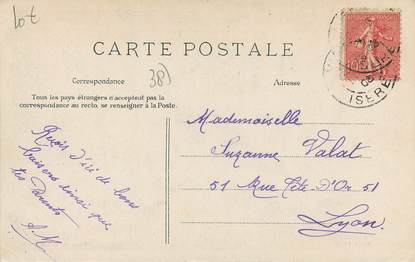 Lot
CARTE POSTALE
Correspondance
38)
Adresse
Tous les pays étrangers n'acceptent pas la
correspondance au recto, se renseigner à la Poste.
Reçois d'ici de bons
baisers ainsi que
tes Parents
S.M.
Mademoiselle
Suzanne Valat
51 Rue Tête-D'Or 51
Lyon
ISERE